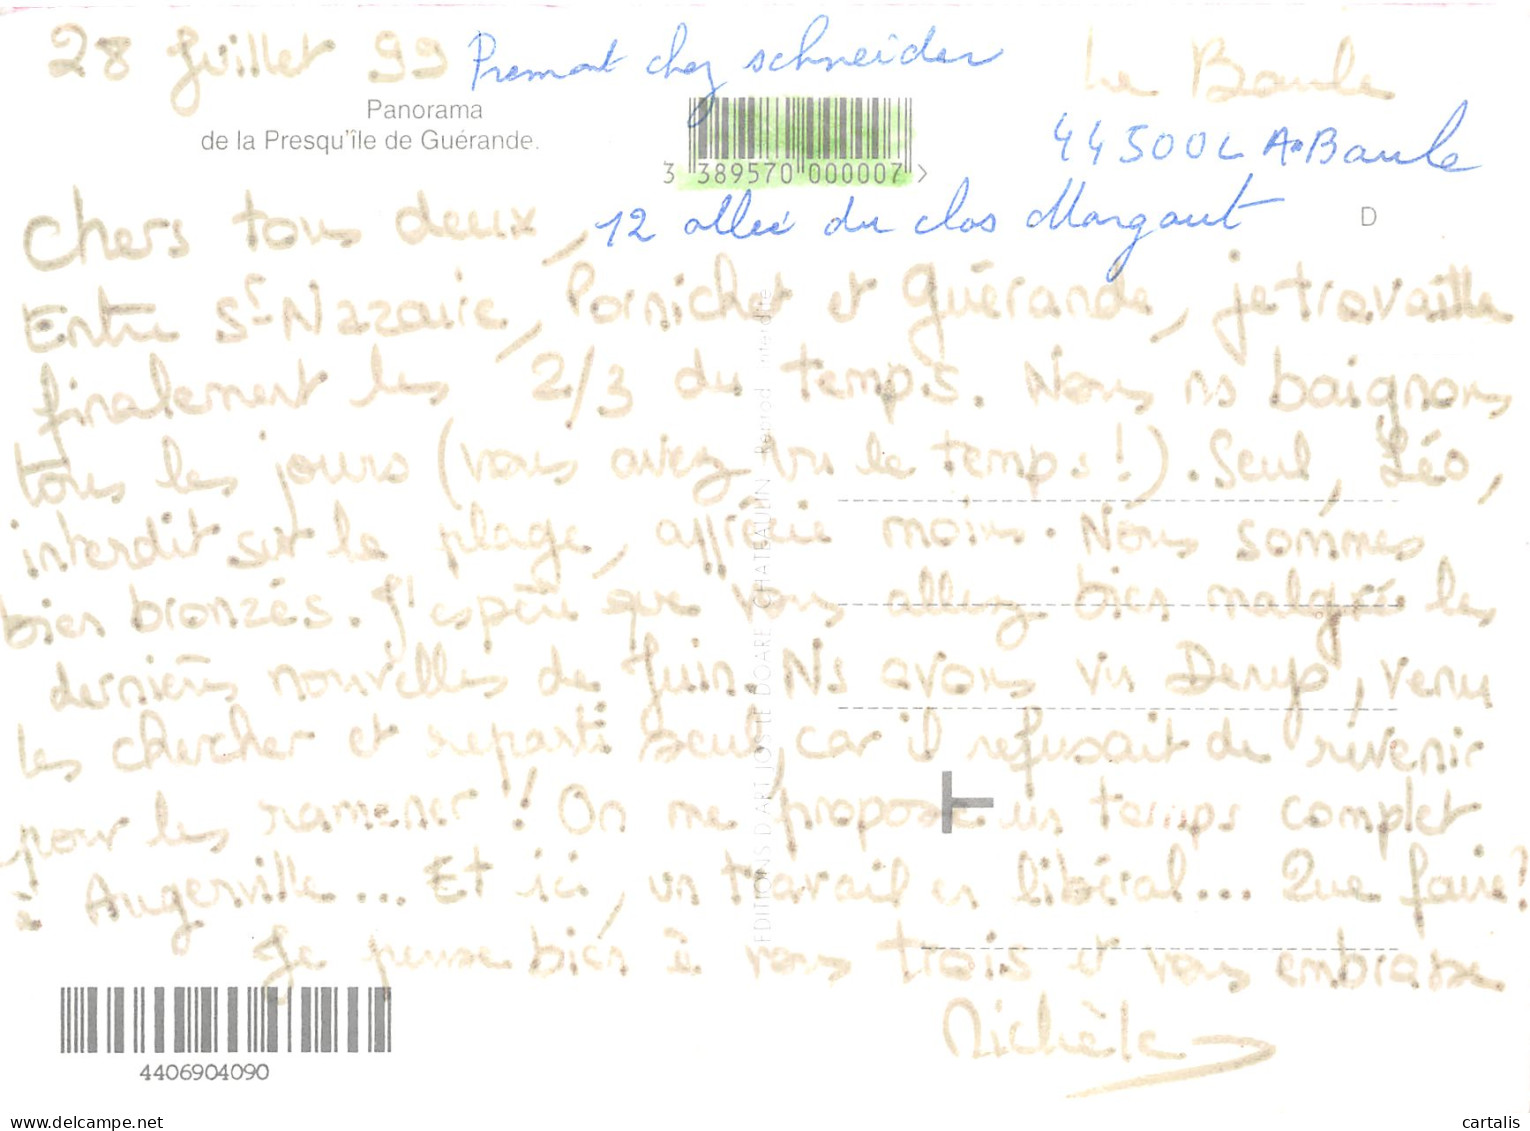 28 Juillet 99 Premont chez schneider La Baule
Panorama
de la Presqu'île de Guérande.
3 389570 000007 >
44500 LA Baule
Chers tous deux, 12 allée du clos Margaut
D
Entre St Nazaire, Pornichet et Guérande, je travaille
finalement les 2/3 du temps. Nous ns baignons
tous les jours (vous aviez vu le temps!). Seul, Léo,
interdit sur la plage, apprécie moins. Nous sommes
bien bronzés. J'espère que vous allez bien malgré les
dernières nouvelles de Juin. Ns avons vu, venu
les chercher et reparti seul, car il refusait de revenir
pour les ramener! On me propose un temps complet
à Angerville... Et ici, un travail en libéral... Que faire!
Je pense bien à vous trois et vous embrasse
Michèle
EDITIONS D'ART JOS LE DOARE CHATEAULIN Reprod. interdite
4406904090
cartalis
delcampe.net